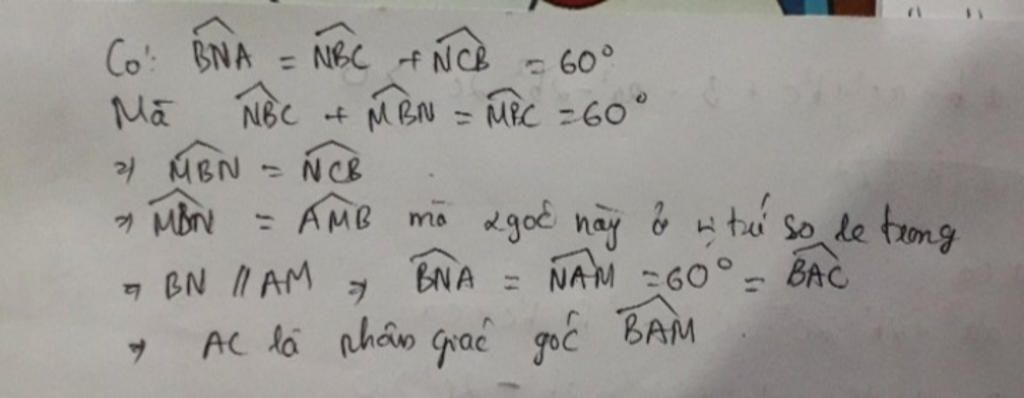 Có: BNA = NBC + NCB = 60°
Mà NBC + MBN = MBC = 60°
=> MBN = NCB
=> MBN = AMB mà 2 góc này ở vị trí so le trong
=> BN // AM => BNA = NAM = 60° = BAC
=> AC là phân giác góc BAM